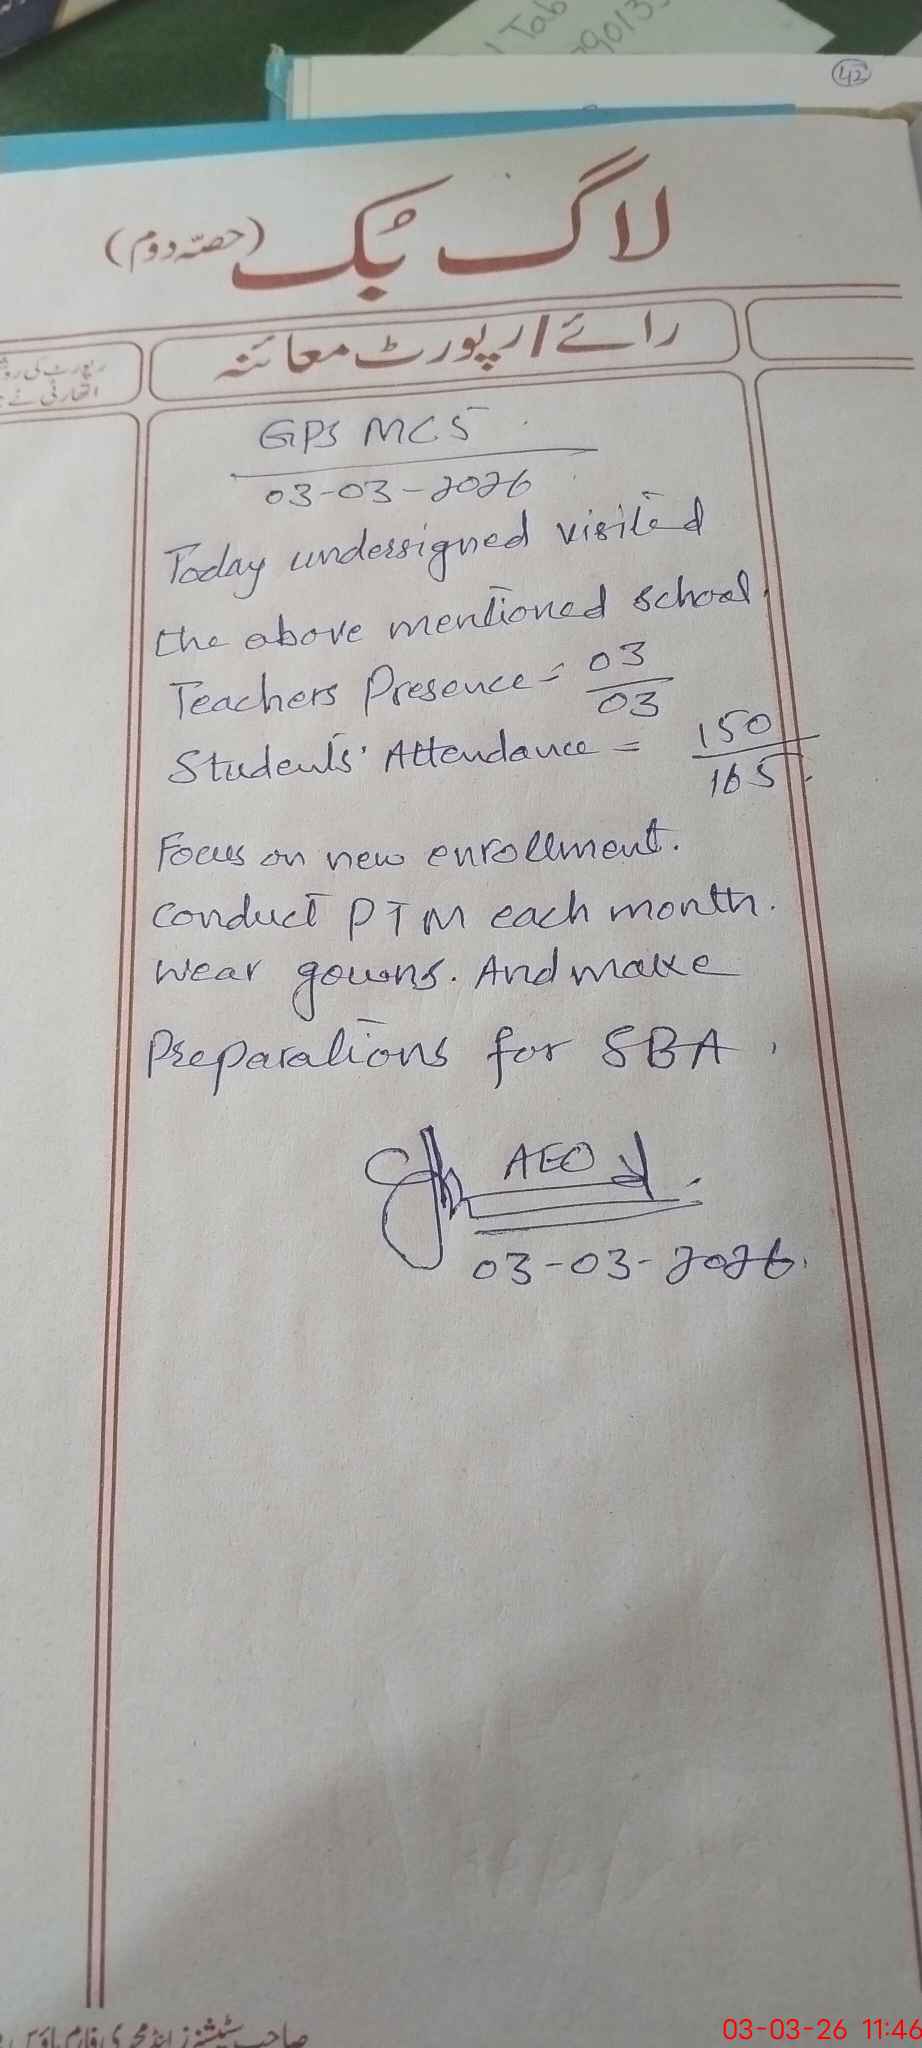 Tab
9013
42
لاگ بُک (حصّہ دوم)
رائے / رپورٹ معائنہ
رپورٹ کی
اتھارٹی نے
GPS MC5
03-03-2026
Today undersigned visited
the above mentioned school.
Teachers Presence = 03/03
Students' Attendance = 150/165.
Focus on new enrollment.
Conduct PTM each month.
wear gowns. And make
Preparations for SBA.
AEO
03-03-2026.
03-03-26 11:46